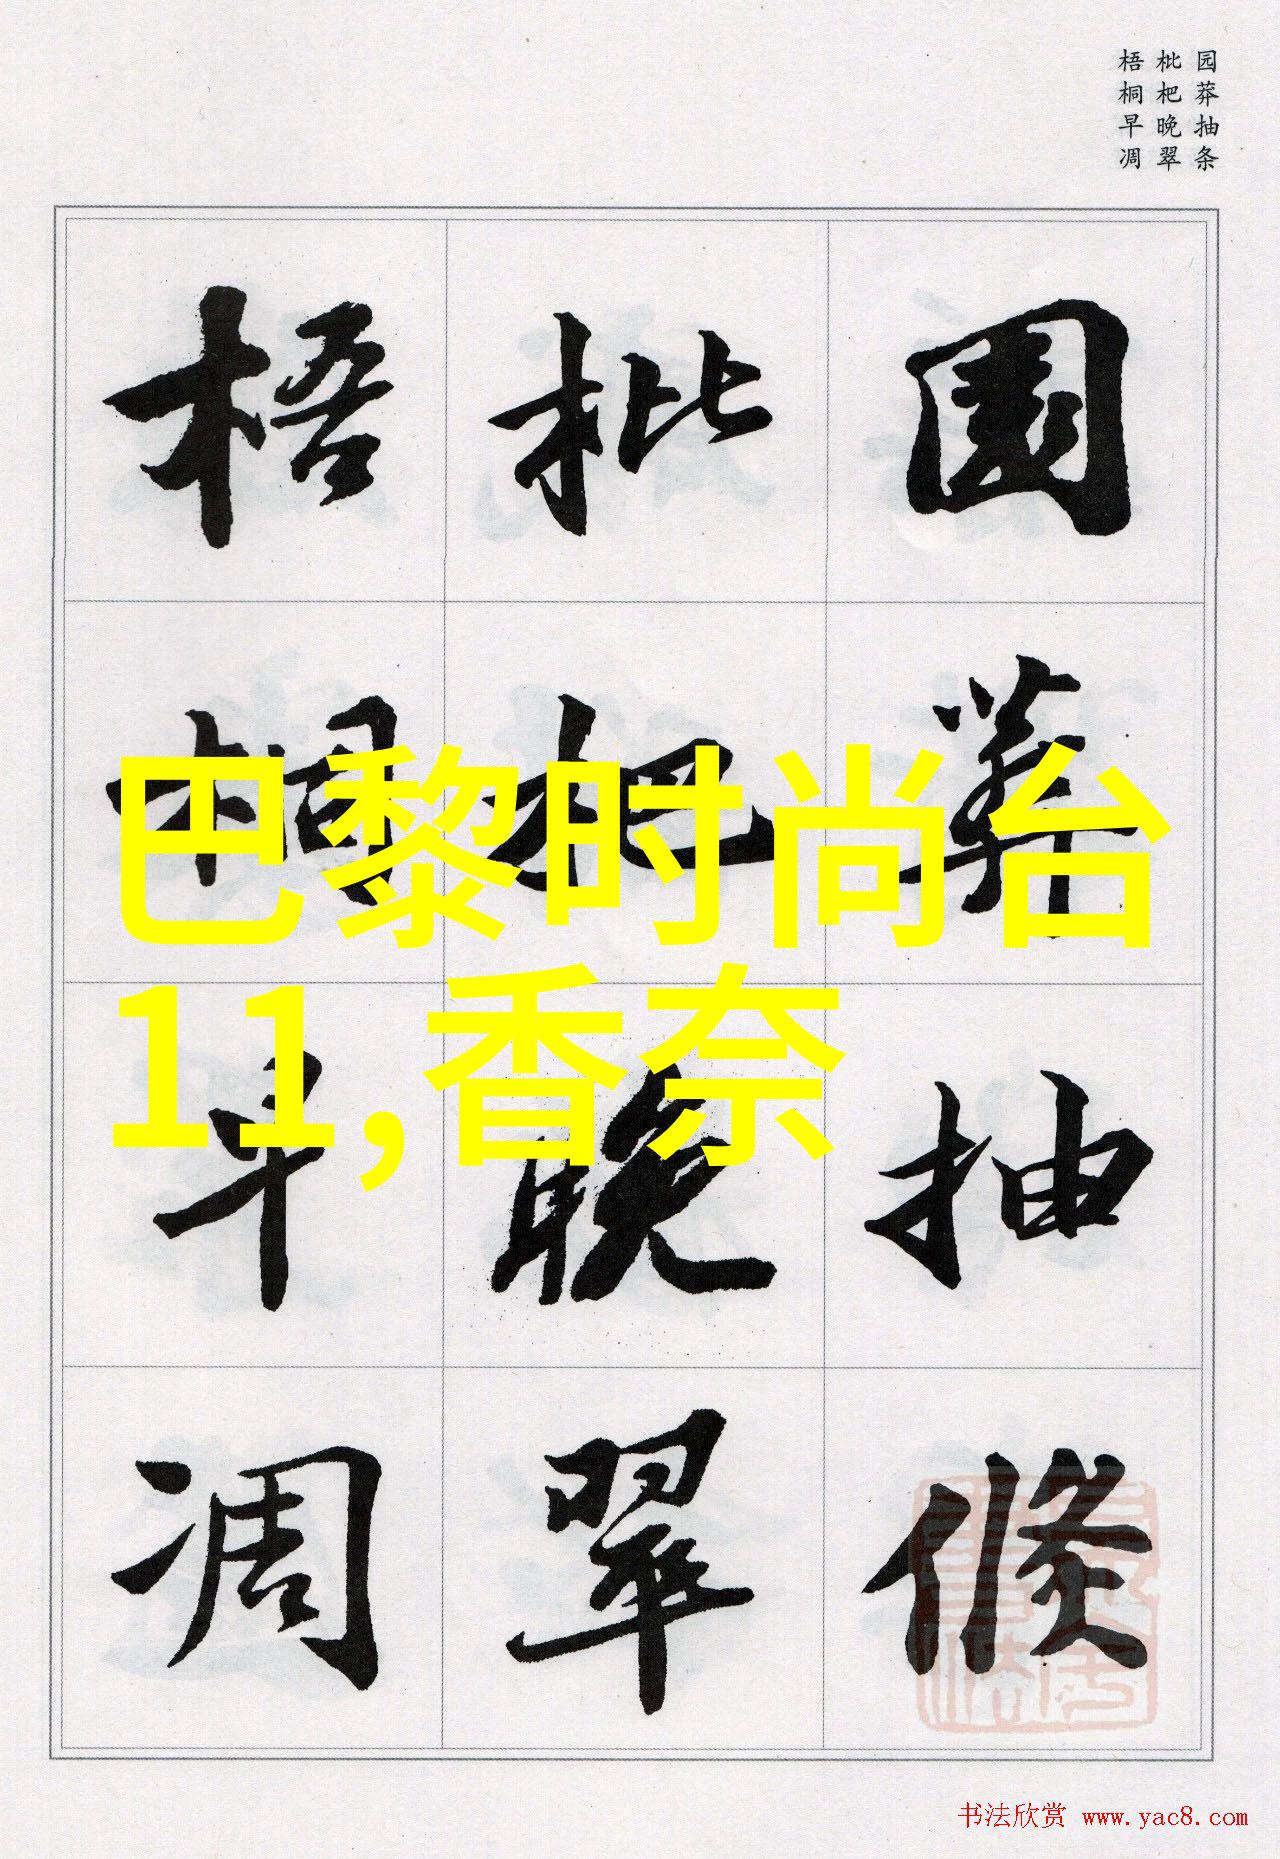 园莽抽条
枇杷晚翠
梧桐早凋
園莽抽條
枇杷晚翠
梧桐早凋
巴黎时尚台
11,香奈
书法欣赏 www.yac8.com